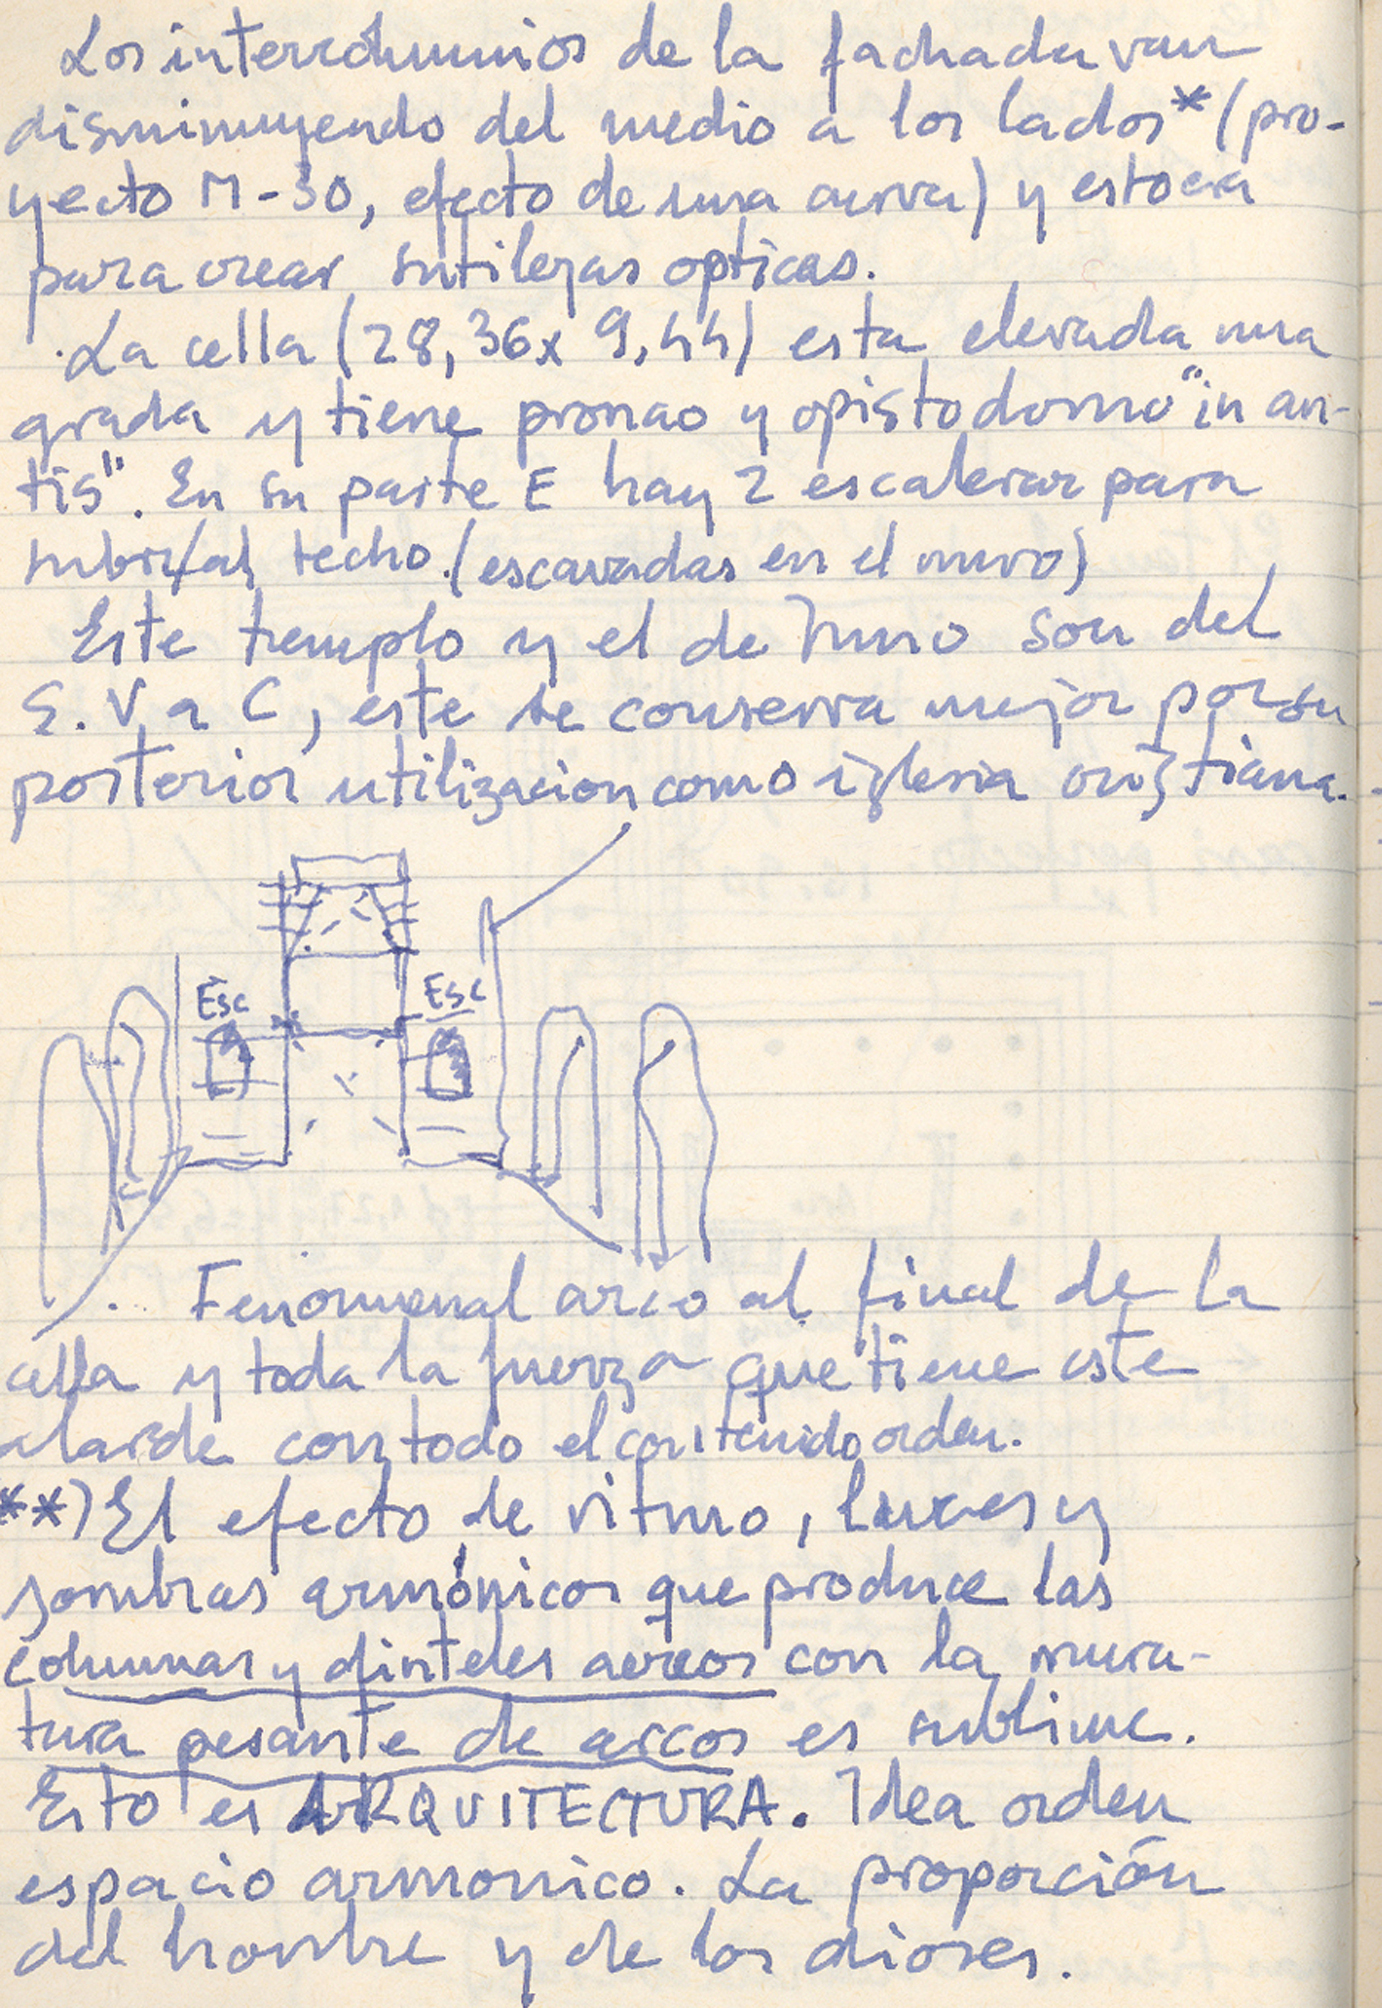 Los intercolumnios de la fachada van
disminuyendo del medio a los lados* (pro-
yecto M-30, efecto de una curva) y esto era
para crear sutilezas opticas.
.La cella (28,36x 9,44) esta elevada una
grada y tiene pronao y opistodomo "in an-
tis". En su parte E hay 2 escaleras para
subir/al techo.(escavadas en el muro)
Este templo y el de Juno son del
S. V a C, este se conserva mejor por su
posterior utilizacion como iglesia cristiana.
Esc Esc
Fenomenal arco al final de la
cella y toda la fuerza que tiene este
alarde con todo el contenido orden.
**) El efecto de ritmo, luces y
sombras armónicos que produce las
columnas y dinteles aereos con la mura-
tura pesante de arcos es sublime.
Esto es ARQUITECTURA. Idea orden
espacio armonico. La proporción
del hombre y de los dioses.